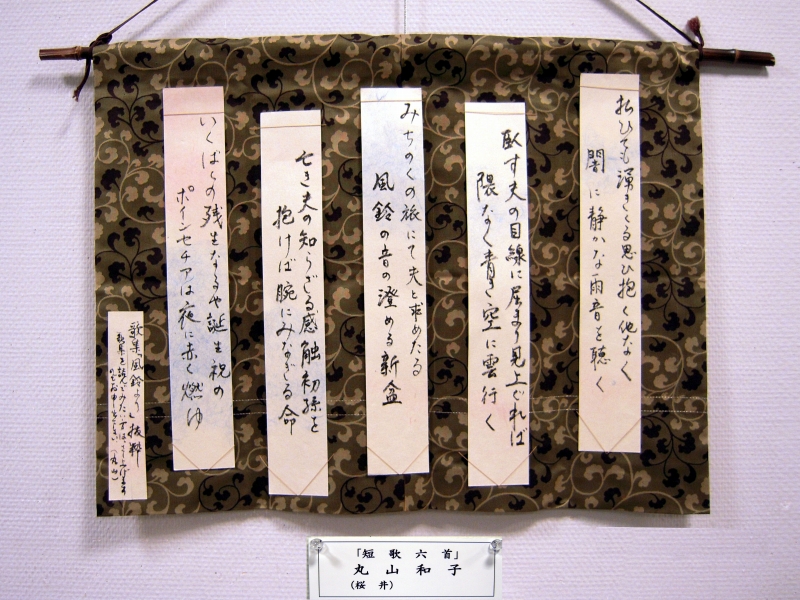 払ひても湧きくる思ひ抱く他なく
闇に静かな雨音を聴く
臥す夫の目線に居まり見上ぐれば
隈なく青き空に雲行く
みちのくの旅にて夫と求めたる
風鈴の音の澄める新盆
亡き夫の知らざる感触初孫を
抱けば腕にみなぎる命
いくばくの残生なるや誕生祝の
ポインセチアは夜に赤く燃ゆ
歌集風鈴より抜粋
歌集を読んでみたい方はさし上げます
(丸山)
「短歌六首」
丸山和子
(桜井)